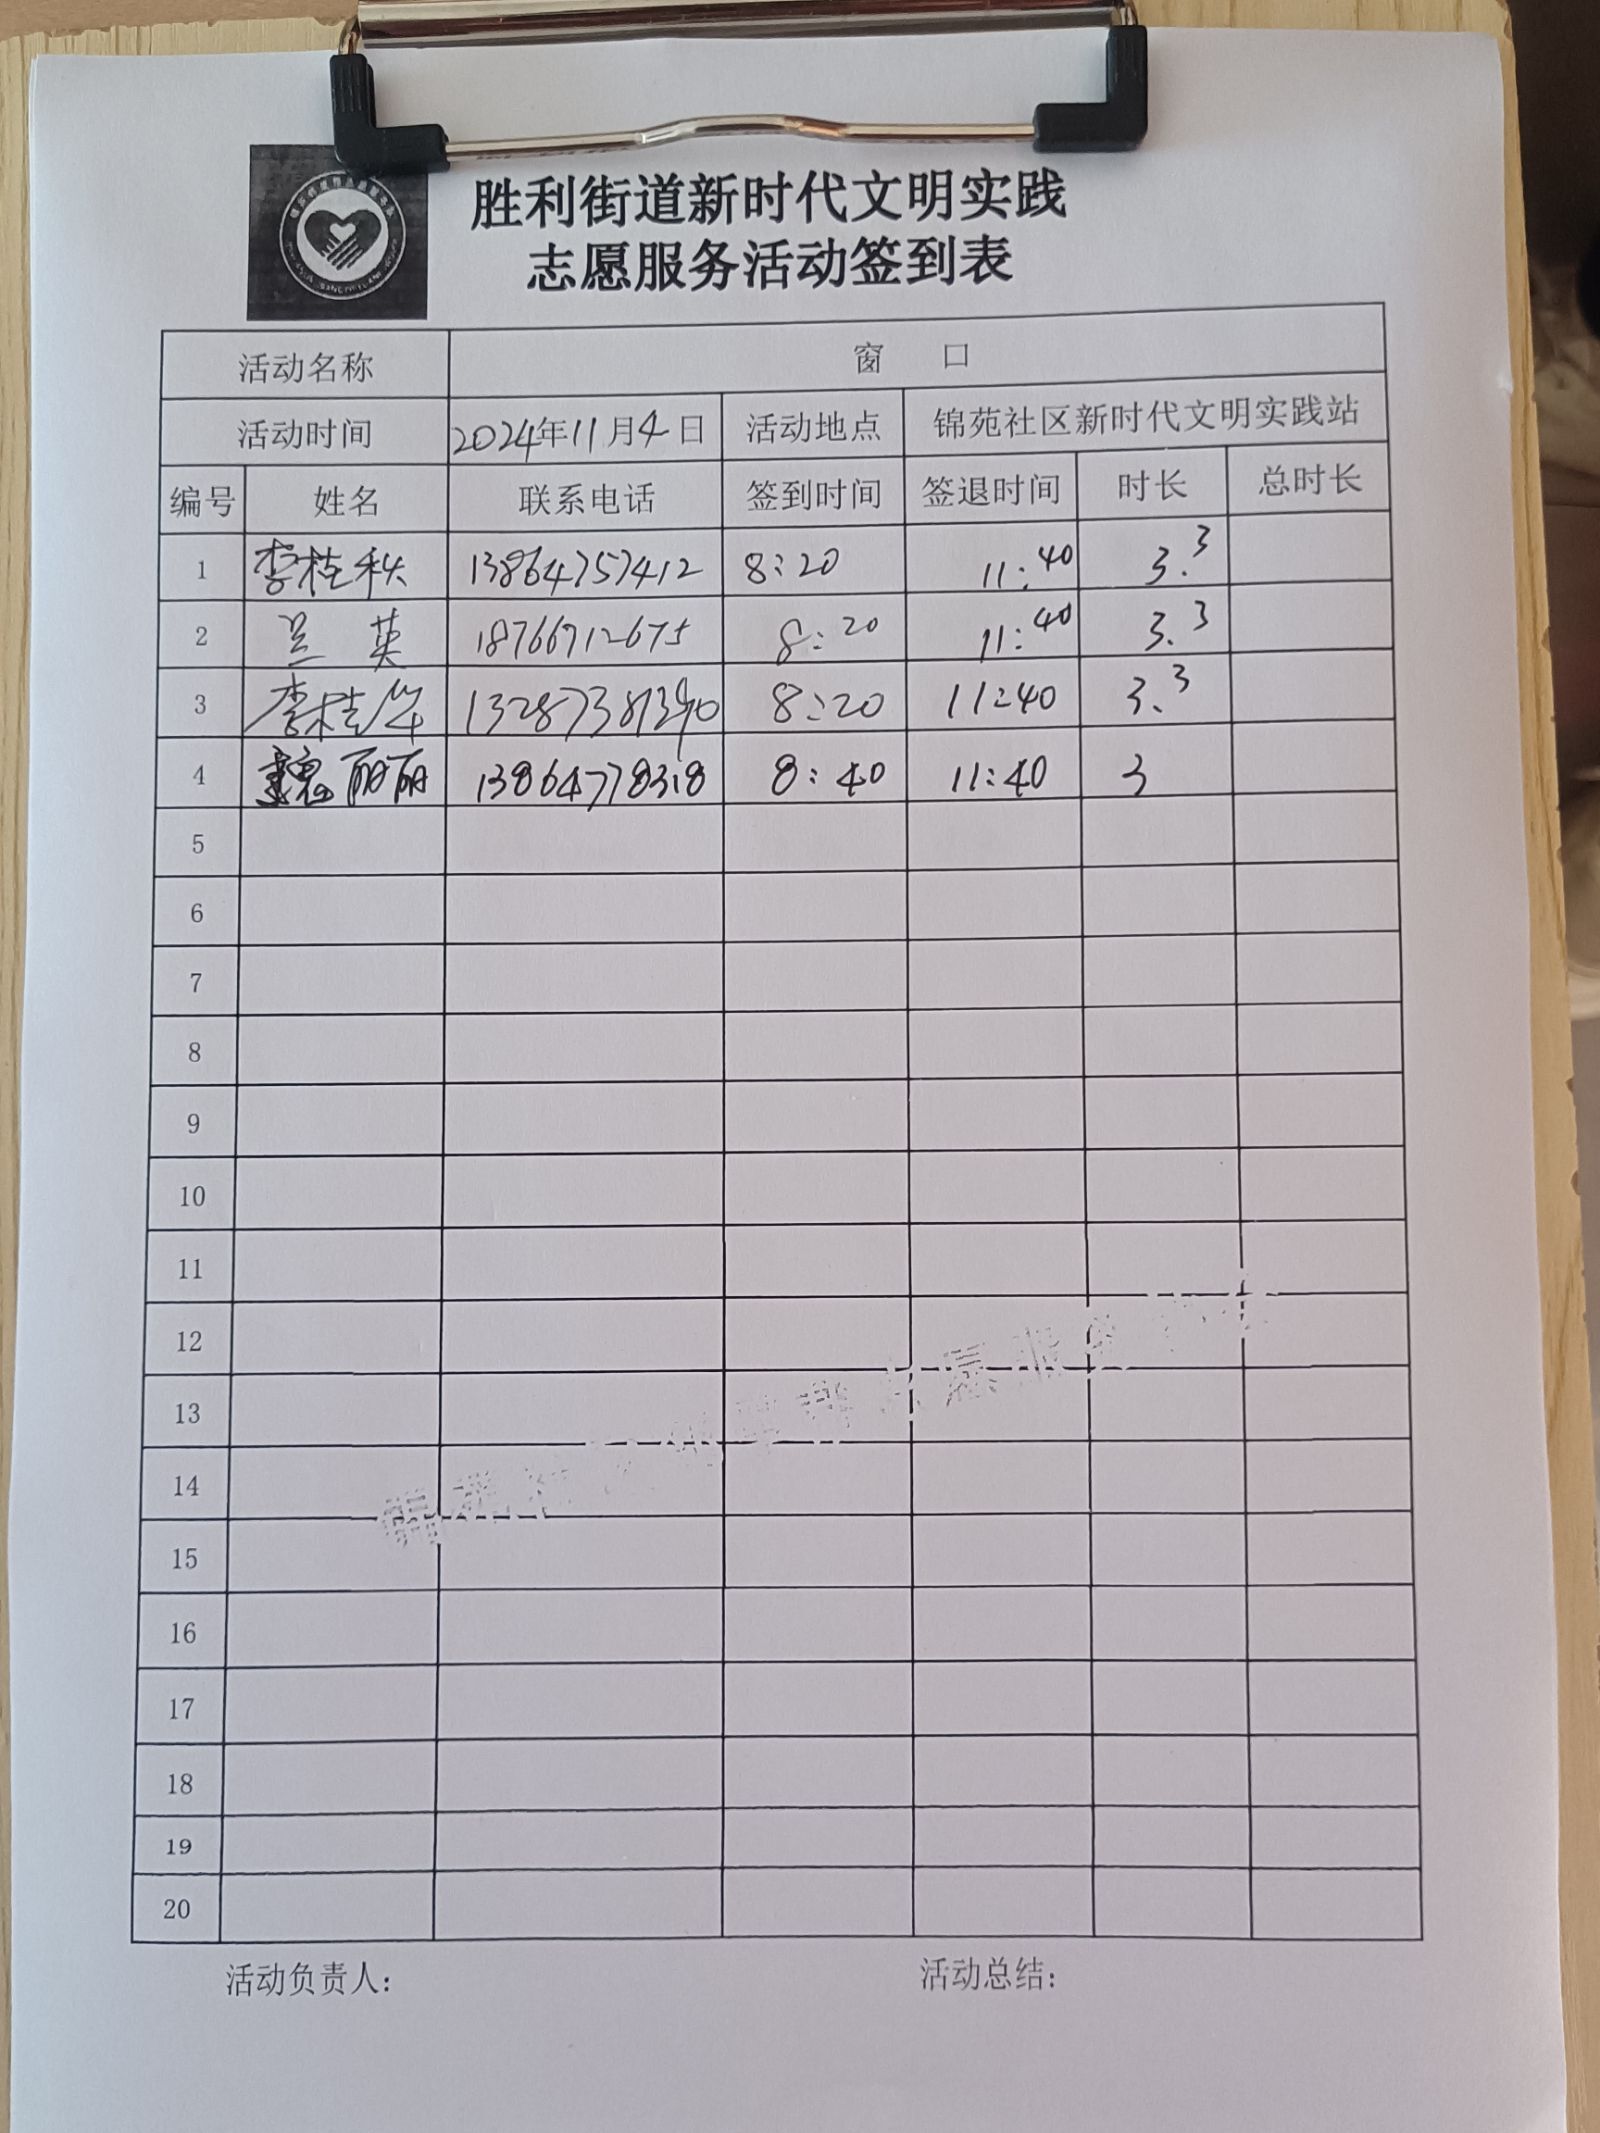 胜利街道新时代文明实践
志愿服务活动签到表
活动名称 窗 口
活动时间 2024年11月4日 活动地点 锦苑社区新时代文明实践站
编号 姓名 联系电话 签到时间 签退时间 时长 总时长
1 李桂秋 13864757412 8:20 11:40 3.3
2 兰英 18766712675 8:20 11:40 3.3
3 李桂华 8:20 11:40 3.3
4 魏丽丽 13864778318 8:40 11:40 3
5
6
7
8
9
10
11
12
13
14
15
16
17
18
19
20
活动负责人： 活动总结：